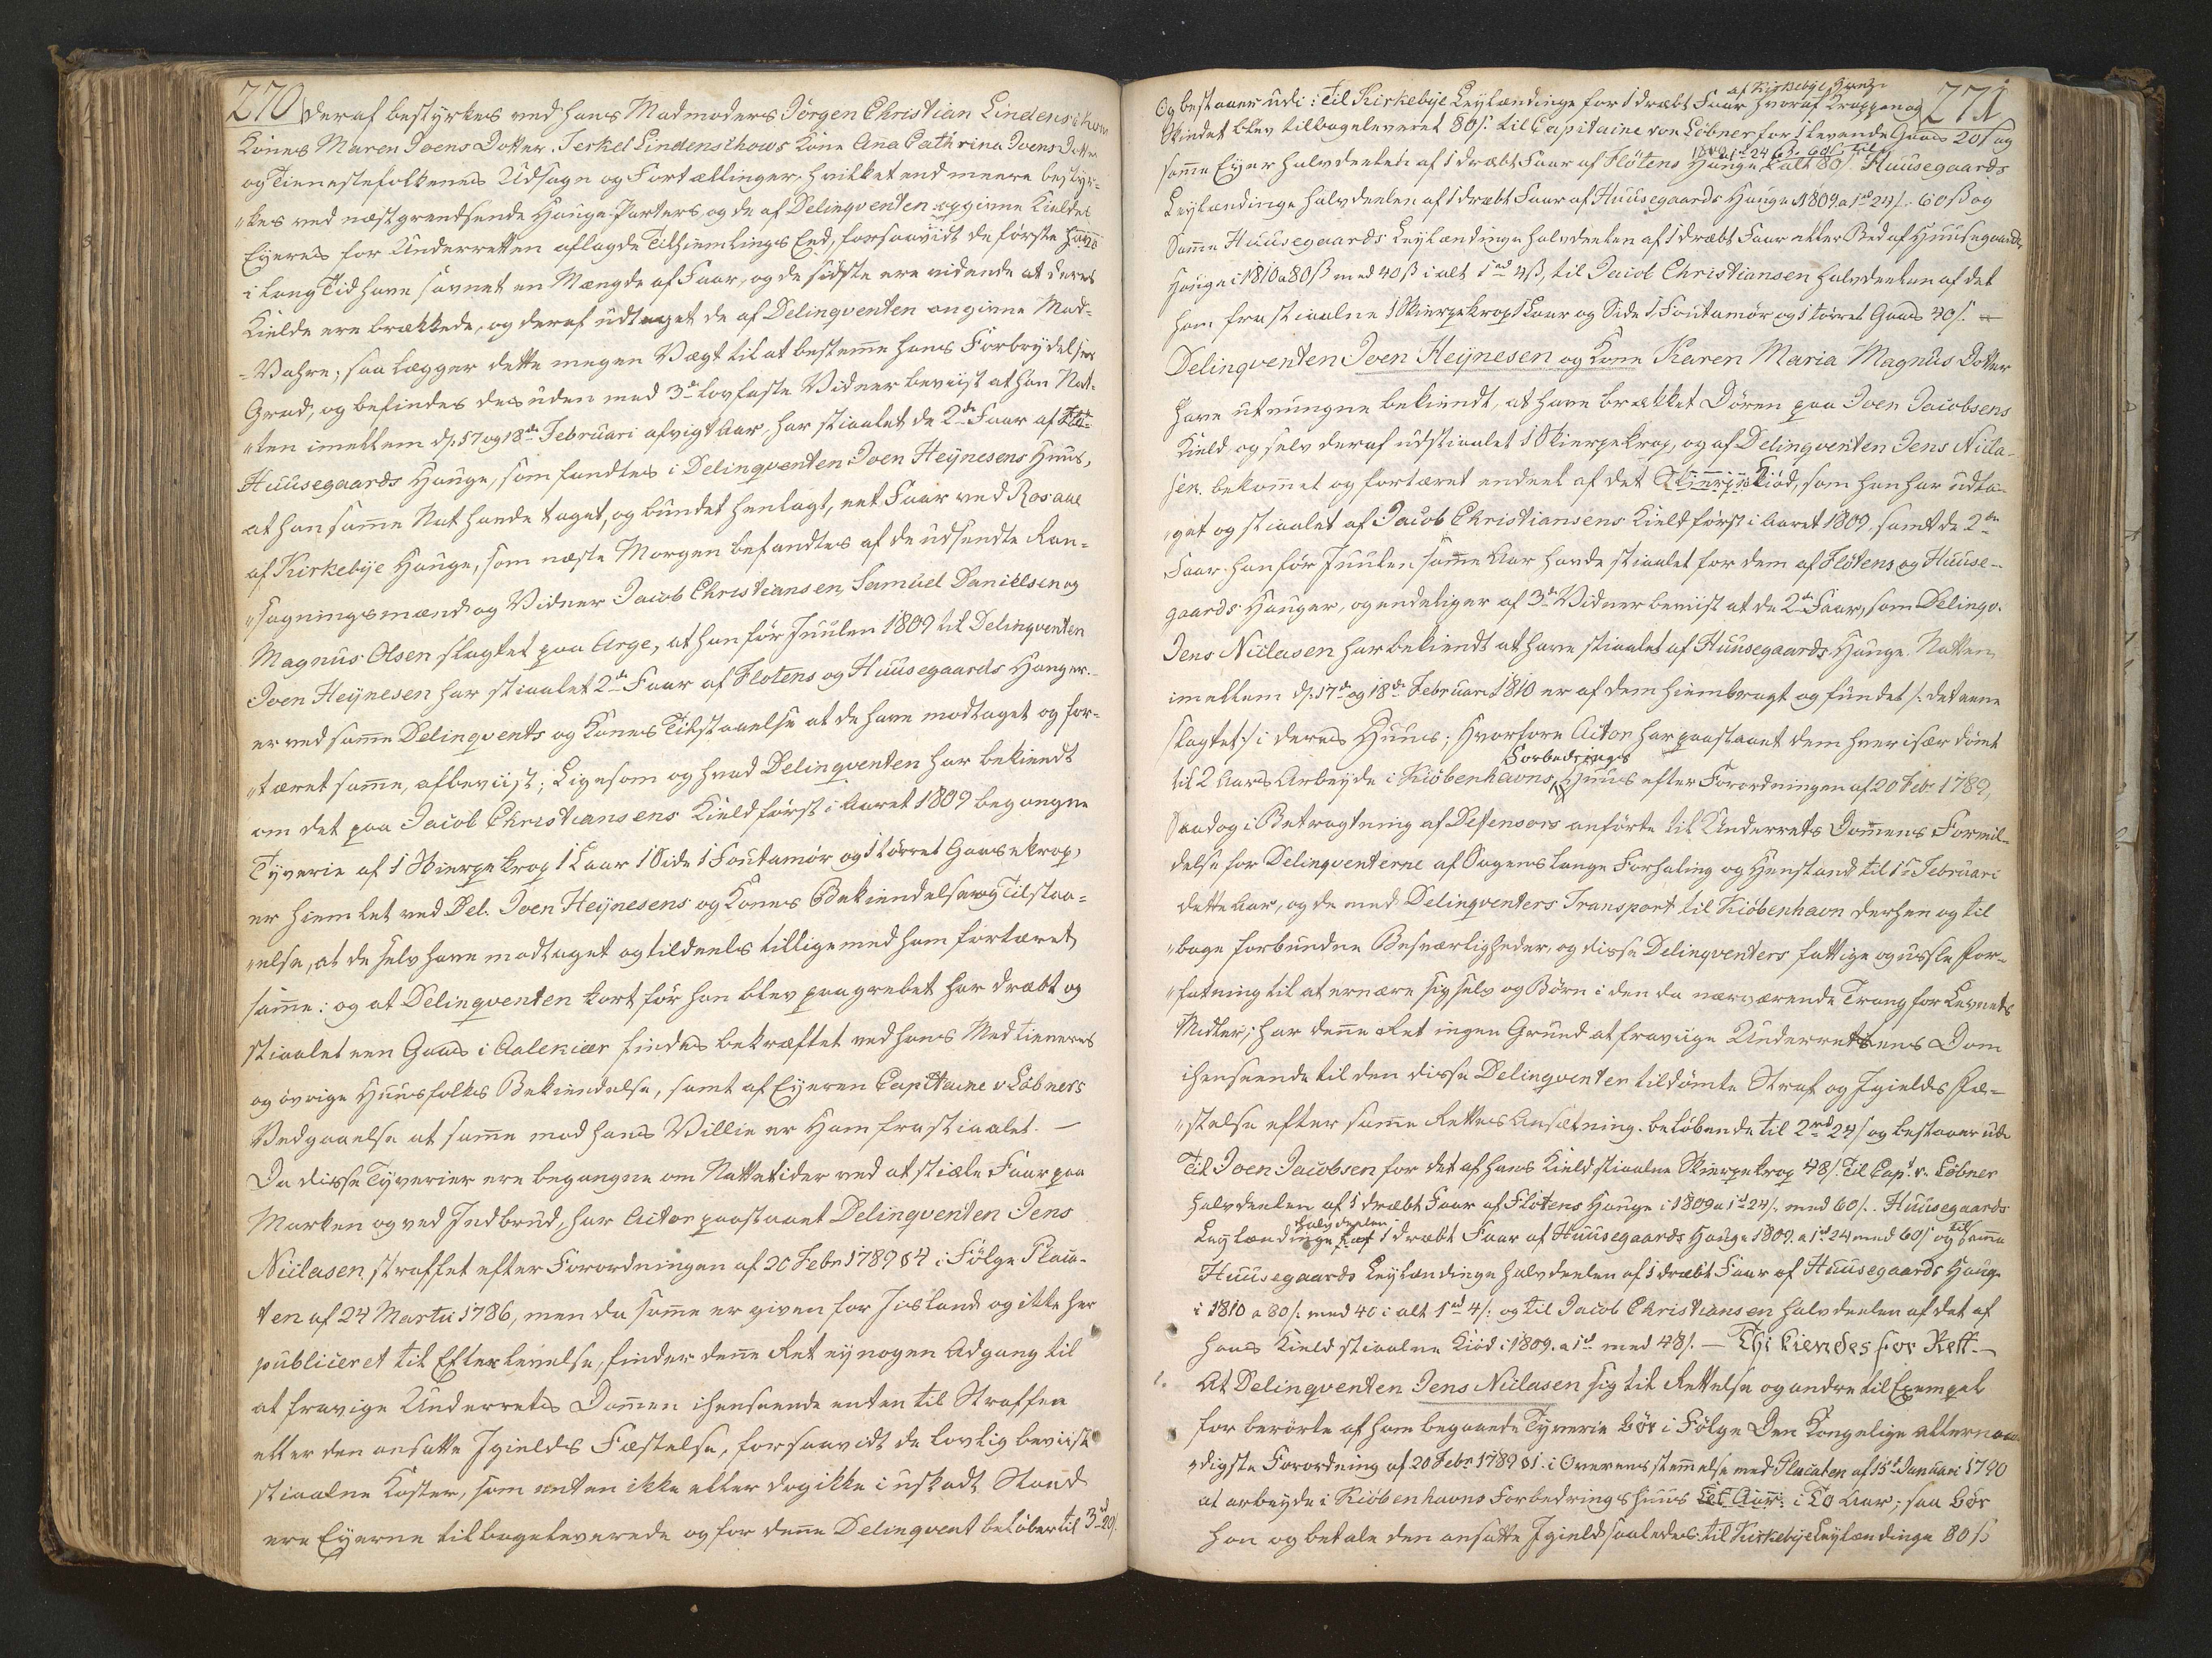 270 deraf bestyrkes ved hans Madmoders Jörgen Christian Lindenschous
Kones Maren Joens Dotter. Jerkel Lindenschows Kone Ana Cathrina Joens Dotter
og Tienestefolkenes Udsagn og Fortællinger, hvilket end meere bestyr-
"kes ved næst grendsende Hauge Parters, og de af Delinqventen opgivne Kieldes
Eyeres for Underretten aflagde Tilhiemlings Eed, forsaavidt de første
i lang Tid have savnet en Mængde af Faar, og de sidste ere vidende at deres
Kielde ere brækkede, og deraf udtaget de af Delinqventen angivne Mad-
-Vahre; saa lægger dette megen Vægt til at bestemme hans Forbrydelses
Grad, og befindes desuden med 3de lovfaste Vidner beviist at han Nat-
"ten imellem d. 17 og 18de Februari afvigt Aar, har stiaalet de 2de Faar af
Huusegaards Hauge, som fandtes i Delinqventen Joen Heÿnesens Huus,
at han samme Nat havde taget, og bundet henlagt, eet Faar ved Rosaae
af Kirkebÿe Hauge, som næste Morgen befandtes af de udsendte Ran-
"sagningsmænd og Vidner Jacob Christiansen, Samuel Daniellsen og
Magnus Olsen slagtet paa Arge, at han før Juulen 1809 til Delinqventen
Joen Heÿnesen har stiaalet 2de Faar af Flotens og Huusegaards Hauger.
er ved samme Delinqvents og Kones Tilstaaelse at de have modtaget og for-
"tæret samme, afbeviist; Ligesom og hvad Delinqventen har bekiendt
om det paa Jacob Christiansens Kield først i Aaret 1809 begangne
Tÿverie af 1 Skierpekrop 1 Laar 1 Side 1 Foutamör og 1 törret Gaasekrop,
er hiemlet ved Del. Joen Heÿnesens og Kones Bekiendelse og Tilstaa-
"else, at de selv have modtaget og tildeels tilligemed ham fortæret
samme: og at Delinqventen kort før han blev paagrebet har dræbt og
stiaalet een Gaas i Aalekiær findes bekræftet ved hans Medtieneres
og øvrige Huusfolkes Bekiendelse, samt af Eyeren Capitaine v Löbners
Vedgaaelse at samme mod hans Villie er Ham frastiaalet. —
Da disse Tÿverier ere begangne om Nattetider ved at stiæle Faar paa
Marken og ved Indbrud, har Actor paastaaet Delinqventen Jens
Niclasen straffet efter Forordningen af 20 Febr 1789 § 4 i Følge Placa-
ten af 24 Martii 1786, men da samme er given for Iisland og ikke her
publiceret til Efterlevelse, finder denne Ret eÿ nogen Adgang til
at fravige Underrets Dommen ihenseende enten til Straffen
eller den ansatte Igields Fæstelse, forsaavidt de lovlig beviiste
stiaalne Koster, som enten ikke eller dog ikke i uskadt Stand
ere Eÿerne tilbageleverede og for denne Delinqvent beløber til 3rd 20/.
271
af Kirkebÿe Hauge
Og bestaaer udi: til Kirkebÿe Leÿlændinge for 1 dræbt Faar hvoraf Kroppen og
Skindet blev tilbageleveret 80/. til Capitaine von Löbner for 1 levende Gaas 20/ og
1809 a 1rd 24 ß. 60/. til
samme Eÿer halvdeelen af 1 dræbt Faar af Flötens Hauge i alt 80/. Huusegaards
Leÿlændinge halvdeelen af 1 dræbt Faar af Huusegaards Hauge 1809 a 1rd 24/. 60 ß og
Samme Huusegaards Leÿlændinge halvdeelen af 1 dræbt Faar eller Bed af Huusegaards
Hauge i 1810 a 80 ß med 40 ß i alt 1rd 4 ß, til Jacob Christiansen halvdeelen af det
ham frastiaalne 1 Skierpekrop 1 Laar og Side 1 Foutamör og 1 törret Gaas 40/. —
Delinqventen Joen Heÿnesen og Kone Karen Maria Magnus Dotter
have utvungne bekiendt, at have brækket Dören paa Joen Jacobsens
Kield og selv deraf udstiaalet 1 Skierpekrop, og af Delinqventen Jens Nicla-
sen bekommet og fortæret endeel af det Kiöd, som han har udta-
"get og stiaalet af Jacob Christiansens Kield først i Aaret 1809, samt de 2de
Faar han før Juulen samme Aar havde stiaalet for dem af Flötens og Huuse-
gaards Hauger, og endeligen af 3de Vidner beviist at de 2de Faar, som Delinqv.
Jens Niclasen har bekiendt at have stiaalet af Huusegaards Hauge Natten
imellem d. 17de og 18de Februari 1810 er af dem hiembragt og fundet /: det eene
slagtet :/ i deres Huus; Hvorfore Actor har paastaaet dem hver især dömt
Forbedrings
til 2 Aars Arbeÿde i Kiöbenhavns Huus efter Forordningen af 20 Feb. 1789,
Saadog i Betragtning af Deffensors anförte til Underrets Dommens Formil-
delse for Delinqventerne af Sagens lange Forhaling og Henstand til 1te Februari
dette Aar, og de med Delinqventers Transport til Kiöbenhavn derhen og til
"bage forbundne Besværligheder, og disse Delinqventers fattige og ussle For-
"fatning til at ernære sig selv og Börn i den da nærværende Trang for Levnets
Midler; har denne Ret ingen Grund at fraviige Underrettens Dom
ihenseende til den disse Delinqventer tildömte Straf og Igields Fæ-
"stelse efter samme Rettes Ansætning. belöbende til 2rd 24/ og bestaaer udi
Til Joen Jacobsen for det af hans Kield stiaalne Skierpekrop 48/. Til Capt. v. Löbner
halvdeelen af 1 dræbt Faar af Flötens Hauge i 1809 a 1rd 24/. med 60/. Huusegaards
halvdeelen til
Leÿlændinge af 1 dræbt Faar af Huusegaards Hauge 1809 a 1rd 24 med 60/ og samme
Huusegaards Leÿlændinge halvdeelen af 1 dræbt Faar af Huusegaards Hauge
i 1810 a 80/. med 40 i alt 1rd 4/: og til Jacob Christiansen halvdeelen af det af
hans Kield stiaalne Kiöd i 1809. a 1rd med 48/. — Thi kiendes for Rett. —
1. At Delinqventen Jens Niclasen sig til Rettelse og andre til Exempel
for berörte af ham begaaede Tÿverie bör i Følge Den Kongelige allernaa-
"digste Forordning af 20 Febr 1789 § 1. i Overensstemmelse med Placaten af 15de Januari 1790
at arbeÿde i Kiöbenhavns Forbedringshuus i To Aar; saa bör
han og betale den ansatte Igield saaledes: til Kirkebÿe Leÿlændinge 80 ß